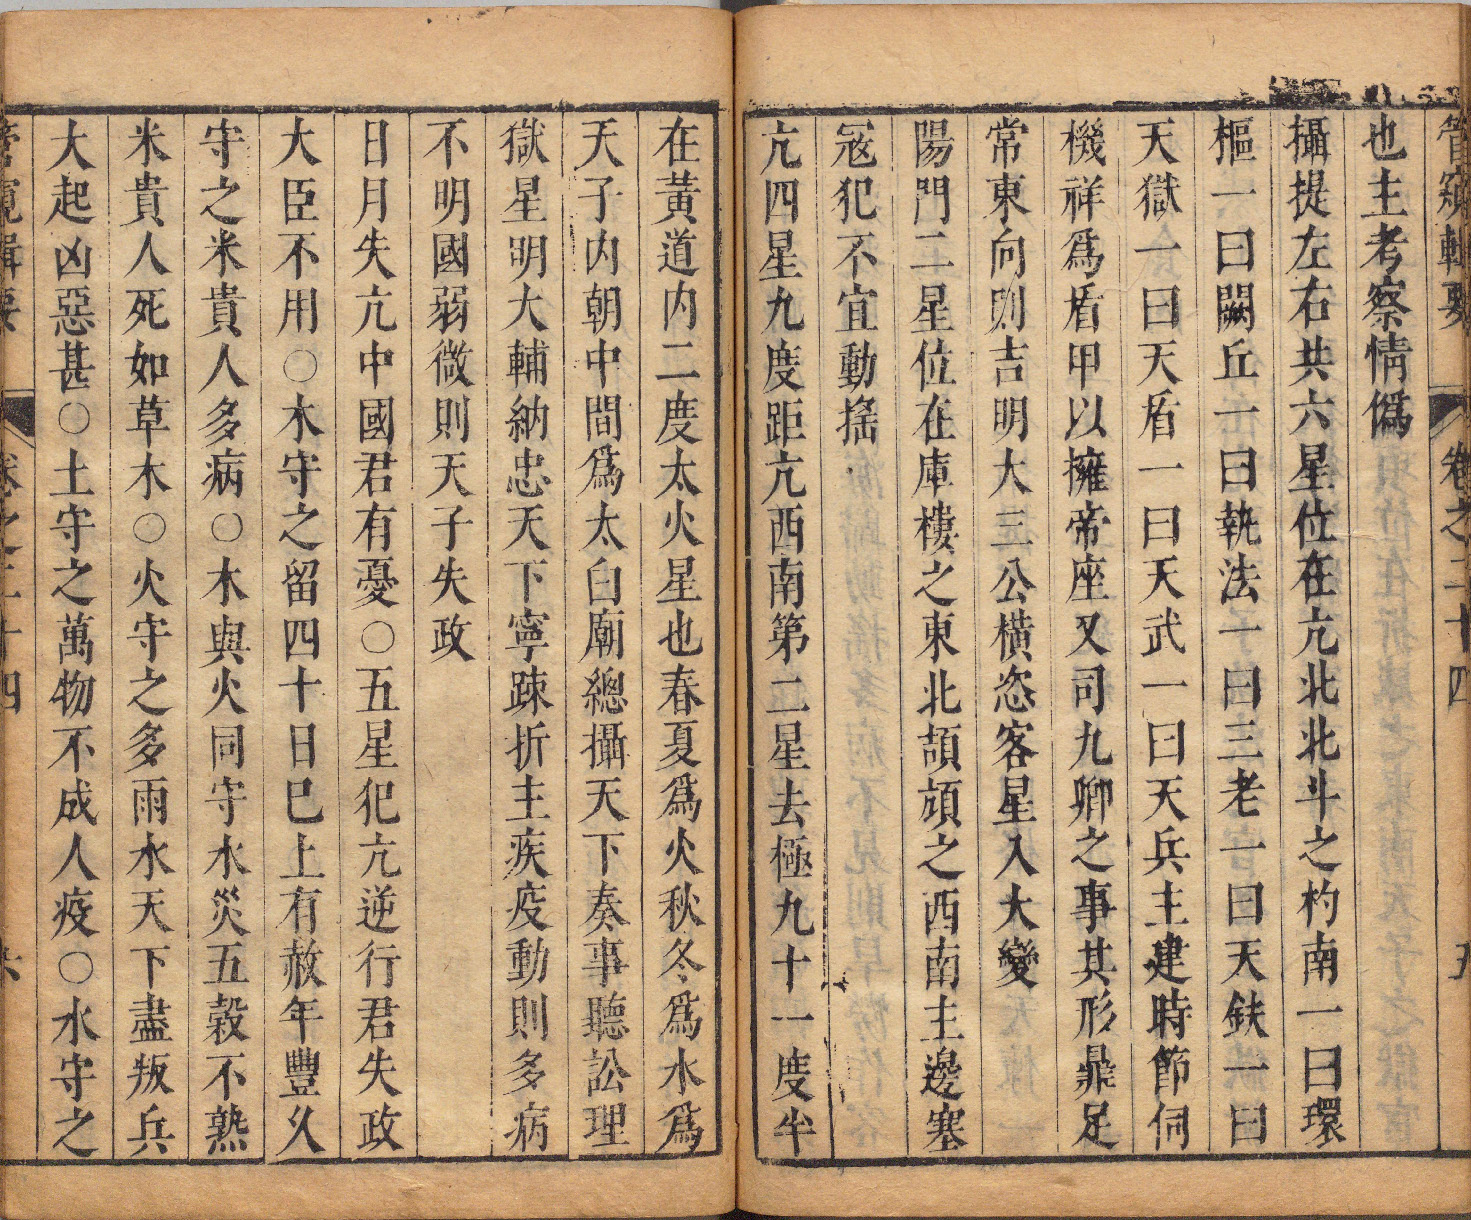 管窺輯要 卷之二十四 五
也主考察情僞
攝提左右共六星位在亢北北斗之杓南一曰環
樞一曰闕丘一曰執法一曰三老一曰天鈇一曰
天獄一曰天盾一曰天武一曰天兵主建時節伺
機祥爲盾甲以擁帝座又司九卿之事其形鼎足
常東向則吉明大三公橫恣客星入大變
陽門二星位在庫樓之東北頡頏之西南主邊塞
冦犯不宜動搖
亢四星九度距亢西南第二星去極九十一度半
在黃道内二度太火星也春夏爲火秋冬爲水爲
天子内朝中間爲太白廟總攝天下奏事聽訟理
獄星明大輔納忠天下寧踈折主疾疫動則多病
不明國弱微則天子失政
日月失亢中國君有憂○五星犯亢逆行君失政
大臣不用○木守之留四十日巳上有赦年豐久
守之米貴人多病○木與火同守水災五榖不熟
米貴人死如草木○火守之多雨水天下盡叛兵
大起凶惡甚○土守之萬物不成人疫○水守之
管窺輯要 卷之二十四 六